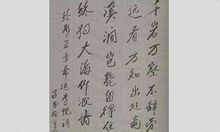 千岩万壑不辞劳
远看方知出处高
溪涧岂能留得住
终归大海作波涛